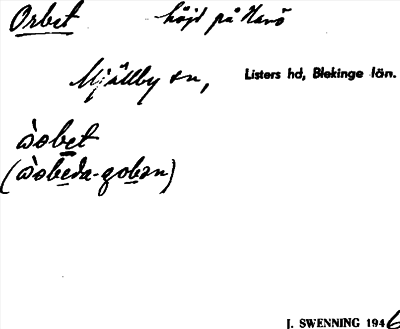 Orbet höjd på Hanö
Mjällby sn, Listers hd, Blekinge län.
òobet
(òobeda-gobən)
J. SWENNING 1946